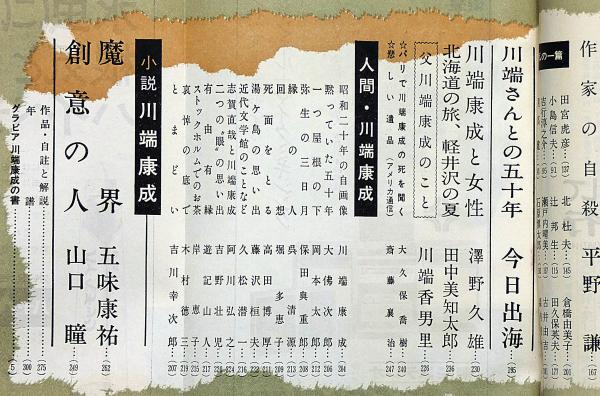 作家の自殺 平野 謙 167
の一篇
田宮虎彦 137
小島信夫 91
吉行淳之介 95
北杜夫 145
辻邦生 115
瀬戸内晴美
倉橋由美子
田久保英夫
古井由吉
川端さんとの五十年 今日出海 295
川端康成と女性 澤野久雄 230
北海道の旅、軽井沢の夏 田中美知太郎 236
父川端康成のこと 川端香男里 226
☆パリで川端康成の死を聞く 大久保喬樹 240
☆悲しい遺品(アメリカ通信) 齋藤襄治 247
人間・川端康成
昭和二十年の自画像 川端康成 204
黙っていた五十年 大佛次郎 206
一つ屋根の下 岡本太郎 212
弥生の三日月 保田與重郎 208
縁の人 呉清源
回想 堀多恵子 209
死面をとる 高田博厚 211
湯ケ島の思い出 藤沢桓夫 222
近代文学館のことなど 久松潜一 216
志賀直哉と川端康成 阿川弘之 224
二つの“眼”の思い出 吉野壮児
有由有縁 遊記山人
ストックホルムでのお茶 岸恵子 215
哀悼の底で 木村徳三 213
とまどい 吉川幸次郎 207
小説 川端康成
魔界 五味康祐 252
創意の人 山口瞳 269
作品・自註と解説 275
年譜 300
グラビア 川端康成の書 5